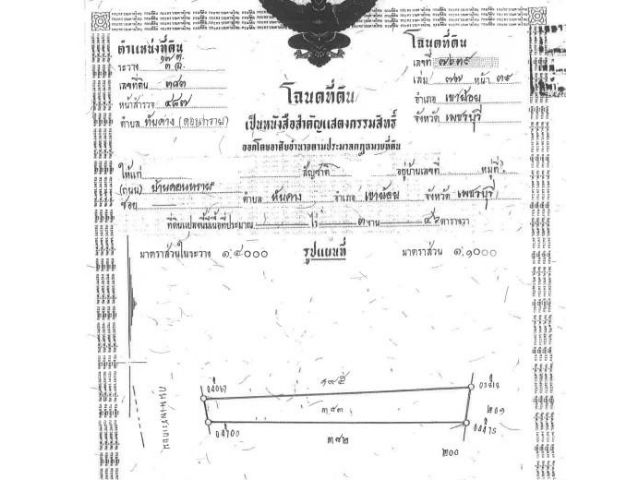 ตำแหน่งที่ดิน
ระวาง
เลขที่ดิน ๓๙๓
หน้าสำรวจ ๔๘๗
ตำบล ทับคาง (ดอนทราย)
โฉนดที่ดิน
เลขที่ ๗๖๓๕
เล่ม ๗๗ หน้า ๓๕
อำเภอ เขาย้อย
จังหวัด เพชรบุรี
โฉนดที่ดิน
เป็นหนังสือสำคัญแสดงกรรมสิทธิ์
ออกโดยอาศัยอำนาจตามประมวลกฎหมายที่ดิน
ให้แก่ สัญชาติ อยู่บ้านเลขที่ หมู่ที่
(ถนน) บ้านดอนทราย ตำบล ทับคาง อำเภอ เขาย้อย จังหวัด เพชรบุรี
ซอย
ที่ดินแปลงนี้มีเนื้อที่ประมาณ ไร่ ๓ งาน ๔๖ ตารางวา
มาตราส่วนในระวาง ๑:๔๐๐๐ รูปแผนที่ มาตราส่วน ๑:๑๐๐๐
๑๙๕
๓๙๓
๒๐๑
๓๗๒
๒๐๐